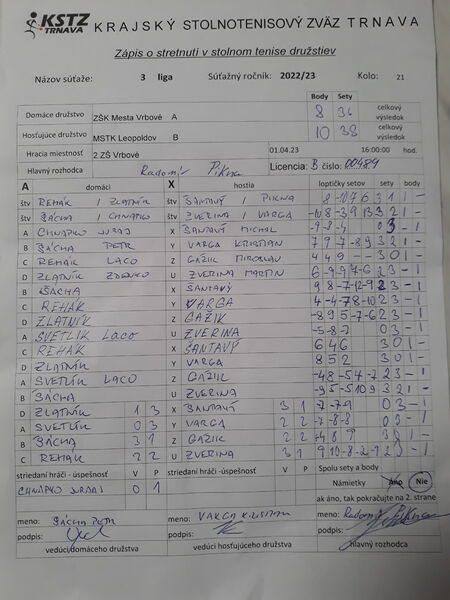 KSTZ TRNAVA KRAJSKÝ STOLNOTENISOVÝ ZVÄZ TRNAVA
Zápis o stretnutí v stolnom tenise družstiev
Názov súťaže: 3 liga Súťažný ročník: 2022/23 Kolo: 21
Body Sety
Domáce družstvo ZŠK Mesta Vrbové A 8 36 celkový výsledok
Hosťujúce družstvo MSTK Leopoldov B 10 38 celkový výsledok
Hracia miestnosť 2.ZŠ Vrbové 01.04.23 16:00:00 hod.
Hlavný rozhodca Radomír Pikna Licencia: B číslo: 00484
A domáci X hostia loptičky setov sety body
štv REHÁK / ZLATNÍK štv ŠANTAVÝ / PIKNA 8 -10 7 6 3 1 1 -
štv ŠÁCHA / CHNAPKO štv ZVERINA / VARGA -10 8 -3 9 13 3 2 1 -
A CHNAPKO JURAJ X ŠANTAVÝ MICHAL -9 -8 -4 0 3 - 1
B ŠÁCHA PETR Y VARGA KRISTIAN 7 9 -7 -8 9 3 2 1 -
C REHÁK LACO Z GAŽIK MIROSLAV 4 4 9 3 0 1 -
D ZLATNÍK ZDENKO U ZVERINA MARTIN 6 -9 9 -6 2 3 - 1
B ŠÁCHA X ŠANTAVÝ 9 8 -7 -12 -9 2 3 - 1
C REHÁK Y VARGA 4 -4 -7 8 -10 2 3 - 1
D ZLATNÍK Z GAŽIK -8 9 5 -7 -6 2 3 - 1
A SVETLÍK LACO U ZVERINA -5 -8 -7 0 3 - 1
C REHÁK X ŠANTAVÝ 6 4 6 3 0 1 -
D ZLATNÍK Y VARGA 8 5 2 3 0 1 -
A SVETLÍK LACO Z GAŽIK -4 8 -5 4 -7 2 3 - 1
B ŠÁCHA U ZVERINA -9 5 -5 10 9 3 2 1 -
D ZLATNÍK 1 3 X ŠANTAVÝ 3 1 -7 -7 -9 0 3 - 1
A SVETLÍK 0 3 Y VARGA 2 2 -7 -8 -8 0 3 - 1
B ŠÁCHA 3 1 Z GAŽIK 2 2 -4 8 9 3 1 -
C REHÁK 2 2 U ZVERINA 3 1 9 10 -8 -2 -7 2 3 - 1
striedaní hráči - úspešnosť V P striedaní hráči -úspešnosť V P Spolu sety a body
CHNAPKO JURAJ 0 1 Námietky Áno Nie
ak áno, tak pokračujte na 2. strane
meno: ŠÁCHA PETR meno: VARGA KRISTIAN meno: Radomír Pikna
podpis: podpis: podpis:
vedúci domáceho družstva vedúci hosťujúceho družstva hlavný rozhodca